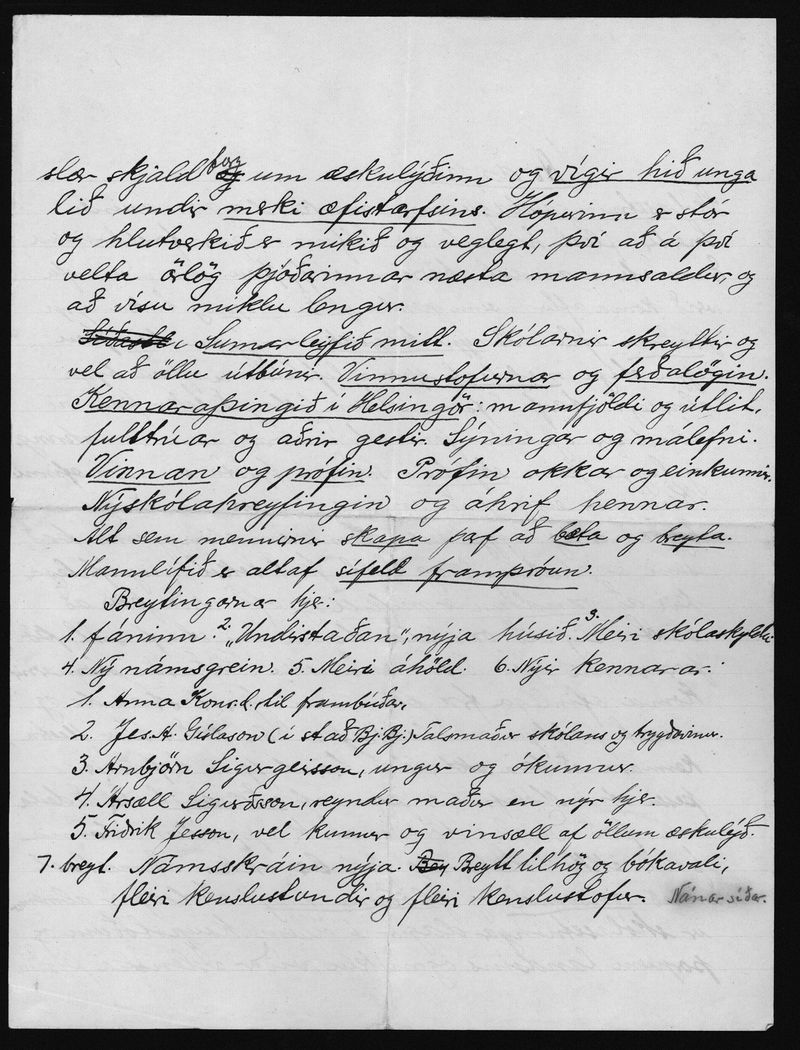 slær skjaldborg um æskulýðinn og vígir hið unga
lið undir merki æfistarfsins. Hópurinn er stór
og hlutverkið er mikið og veglegt, því að á því
velta örlög þjóðarinnar næsta mannsaldur, og
að vísu miklu lengur.
Sumarleyfið mitt. Skólarnir skreyttir og
vel að öllu útbúnir. Vinnustofurnar og ferðalögin.
Kennaraþingið í Helsingör: mannfjöldi og útlit,
fulltrúar og aðrir gestir. Sýningar og málefni.
Vinnan og prófin. Prófin okkar og einkunnir.
Nýskólahreyfingin og áhrif hennar.
Alt sem mennirnir skapa þarf að bæta og breyta.
Mannlífið er altaf sífeld framþróun.
Breytingarnar hjer:
1. fáninn. 2. „Undirstaðan“, nýja húsið. 3. Meiri skólaskylda.
4. Ný námsgrein. 5. Meiri áhöld. 6. Nýir kennarar:
1. Anna Konr.d. til frambúðar,
2. Jes. A. Gíslason (í stað Bj. Bj.) Talsmaður skólans og trygðavinur.
3. Arnbjörn Sigurgeirsson, ungur og ókunnur.
4. Ársæll Sigurðsson, reyndur maður en nýr hjer.
5. Friðrik Jesson, vel kunnur og vinsæll af öllum æskulýð.
7. breyt. Námsskráin nýja. Breytt tilhög og bókavali,
fleiri kenslustundir og fleiri kenslustofur. Nánar síðar.